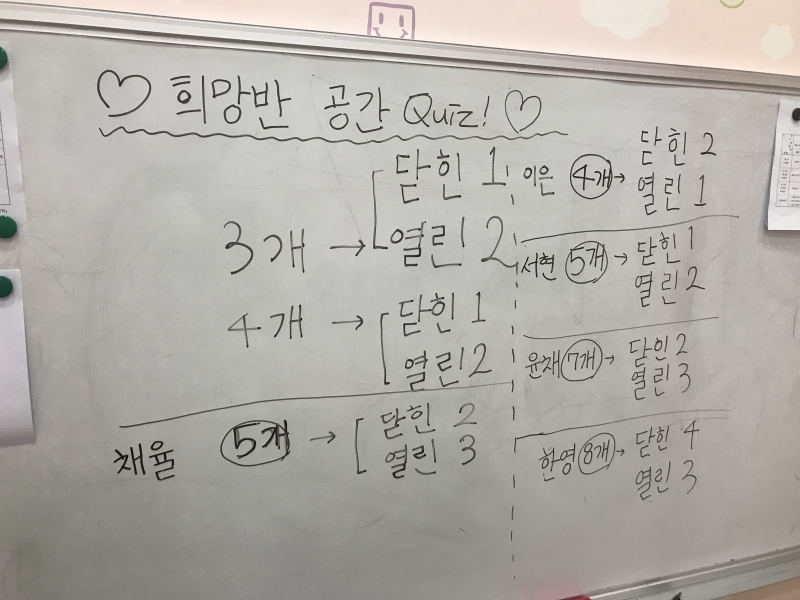 ♡ 희망반 공간 Quiz! ♡
3개 → 닫힌 1
열린 2
4개 → 닫힌 1
열린 2
채율 5개 → 닫힌 2
열린 3
이은 4개 → 닫힌 2
열린 1
서현 5개 → 닫힌 1
열린 2
윤재 7개 → 닫힌 2
열린 3
한영 8개 → 닫힌 4
열린 3